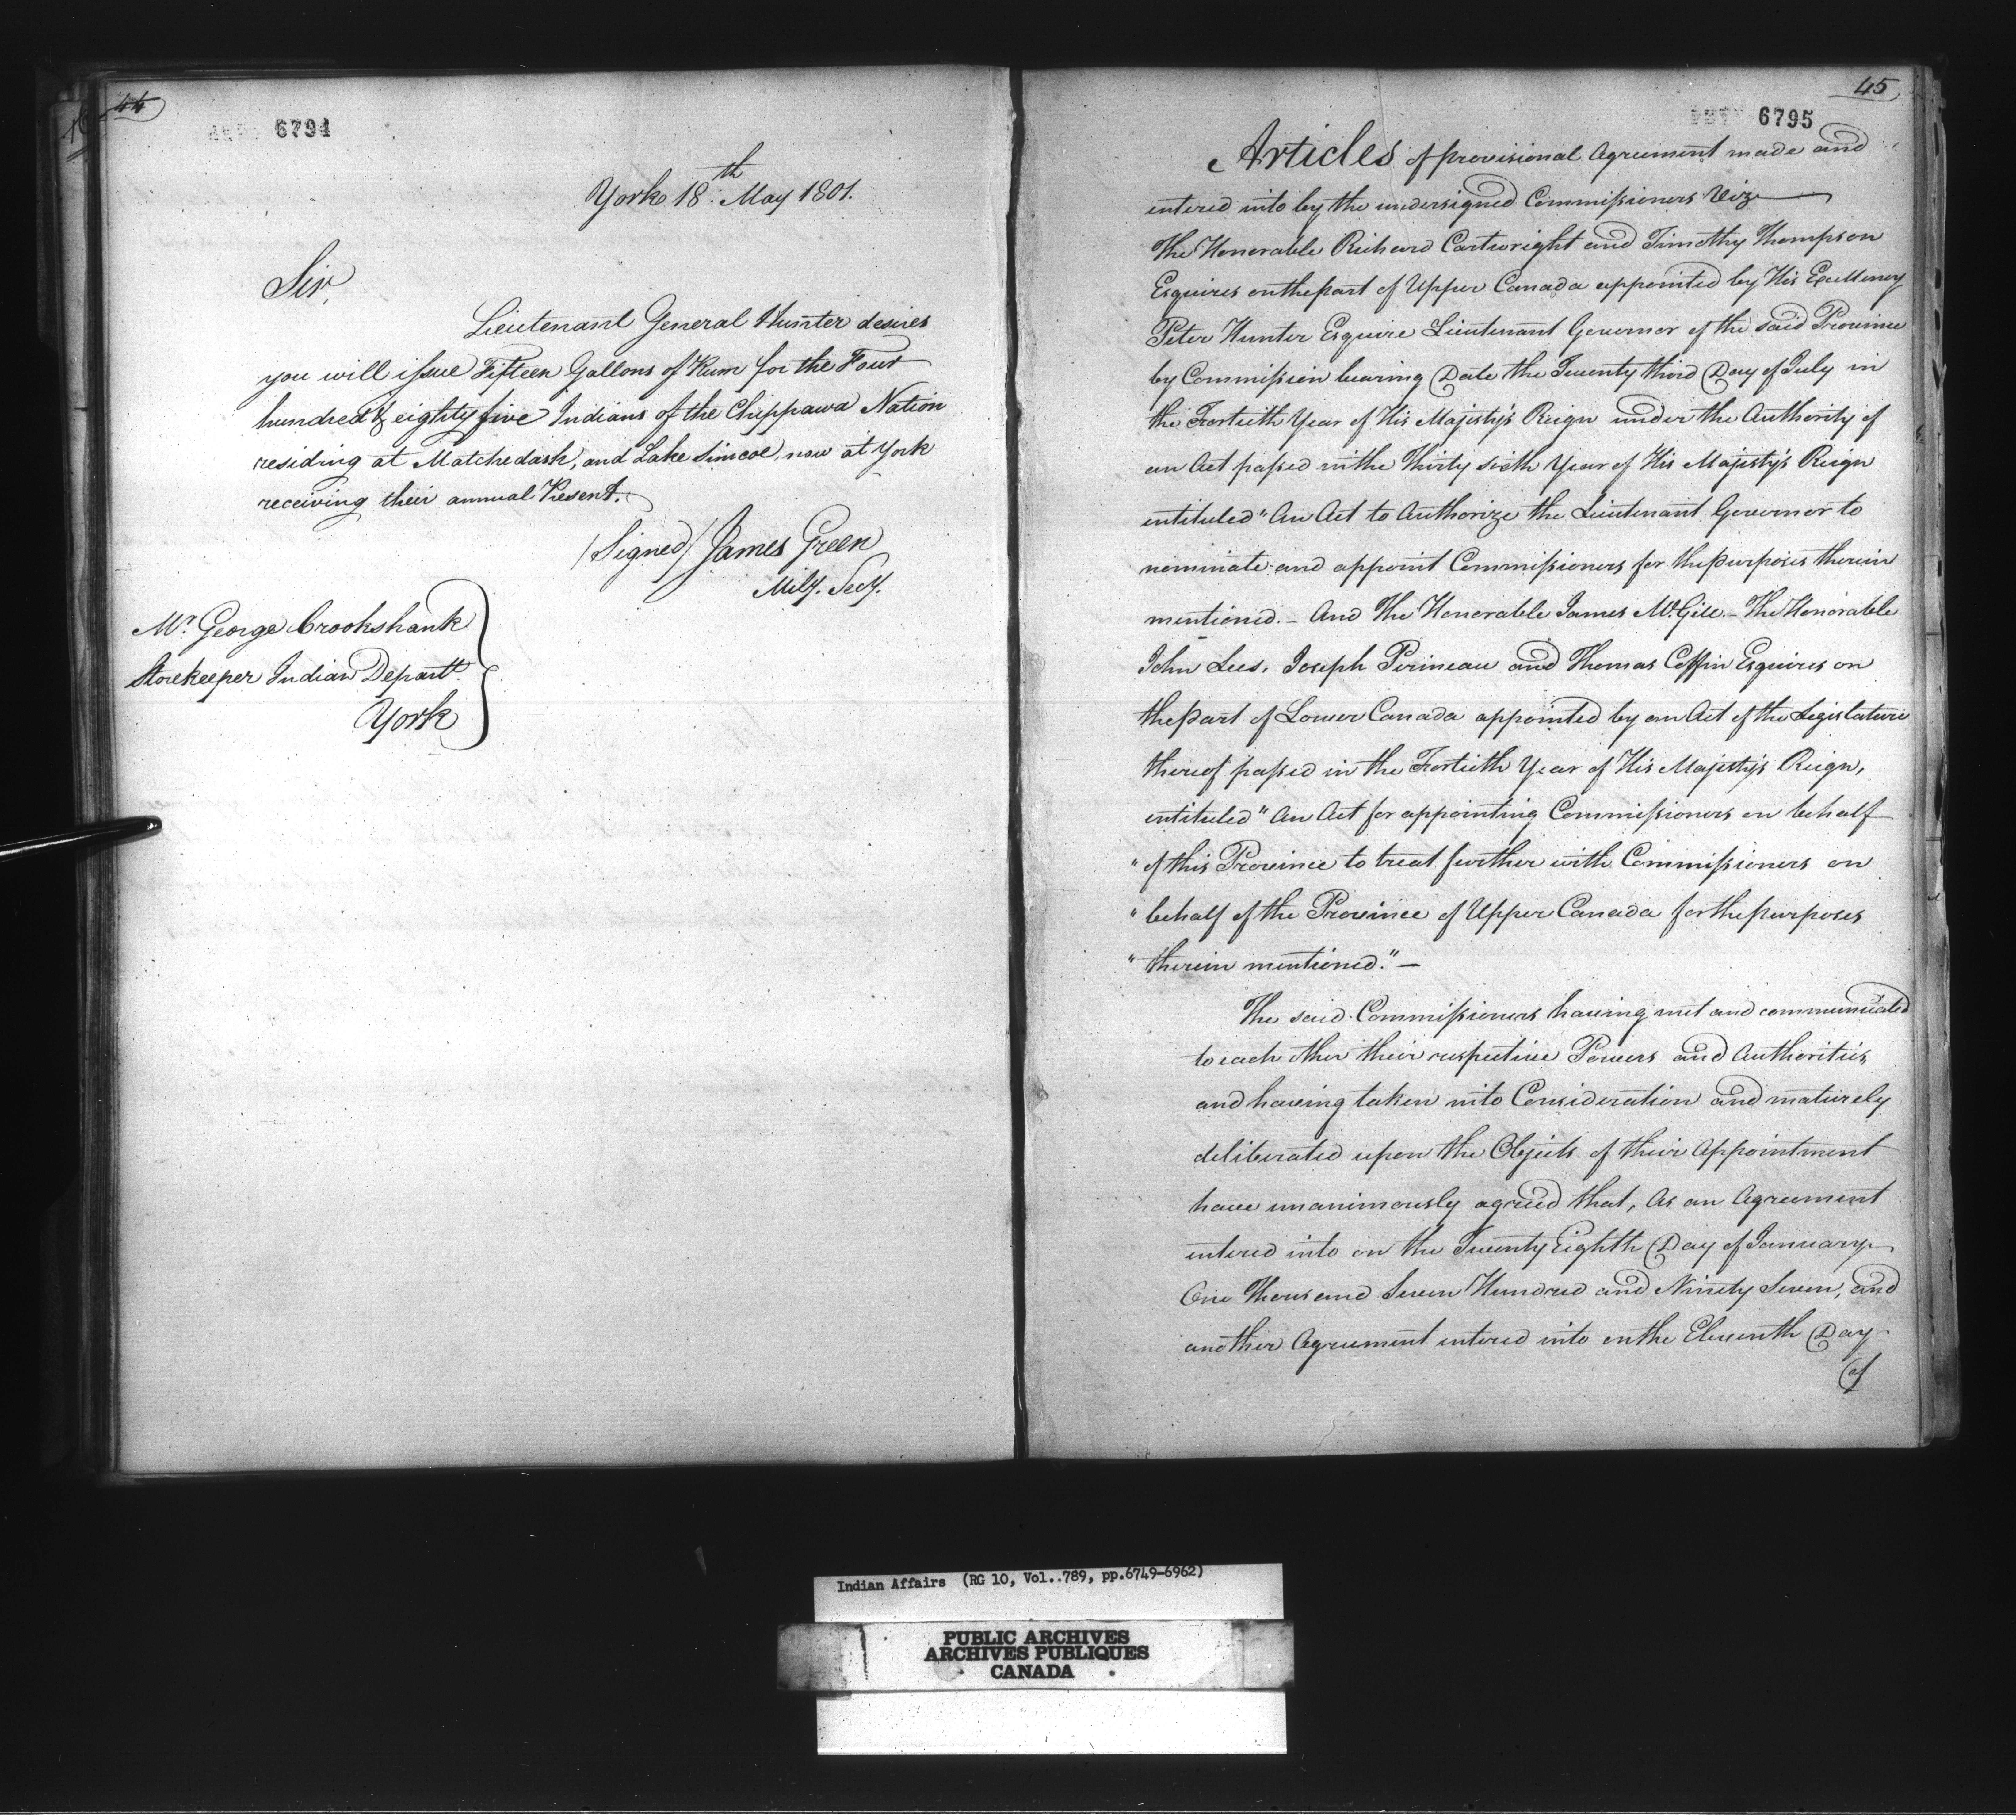 44
6794
York 18th May 1801.
Sir,
Lieutenant General Hunter desires
you will issue Fifteen Gallons of Rum for the Four
hundred & eighty five Indians of the Chippawa Nation
residing at Matchedash, and Lake Simcoe, now at York
receiving their annual Present.
(Signed) James Green
Mily. Secy.
Mr. George Crookshank
Storekeeper Indian Depart.
York
45
6795
Articles of provisional Agreement made and
entered into by the undersigned Commissioners Viz
The Honorable Richard Cartwright and Timothy Thompson
Esquires on the part of Upper Canada appointed by His Excellency
Peter Hunter Esquire Lieutenant Governor of the said Province
by Commission bearing Date the Twenty third Day of July in
the Fortieth Year of His Majesty's Reign under the Authority of
an Act passed in the Thirty sixth Year of His Majesty's Reign
entituled "An Act to Authorize the Lieutenant Governor to
nominate and appoint Commissioners for the purposes therein
mentioned. – And The Honorable James McGill – The Honorable
John Lees, Joseph Perineau and Thomas Coffin Esquires on
the part of Lower Canada appointed by an Act of the Legislature
thereof passed in the Fortieth Year of His Majesty's Reign,
entituled "An Act for appointing Commissioners on behalf
"of this Province to treat further with Commissioners on
"behalf of the Province of Upper Canada for the purposes
"therein mentioned." –
The said Commissioners having met and communicated
to each other their respective Powers and Authorities
and having taken into Consideration and maturely
deliberated upon the Objects of their Appointment
have unanimously agreed that, As an Agreement
entered into on the Twenty Eighth Day of January
One Thousand Seven Hundred and Ninety Seven, and
another Agreement entered into on the Eleventh Day
of
Indian Affairs (RG 10, Vol..789, pp.6749-6962)
PUBLIC ARCHIVES
ARCHIVES PUBLIQUES
CANADA